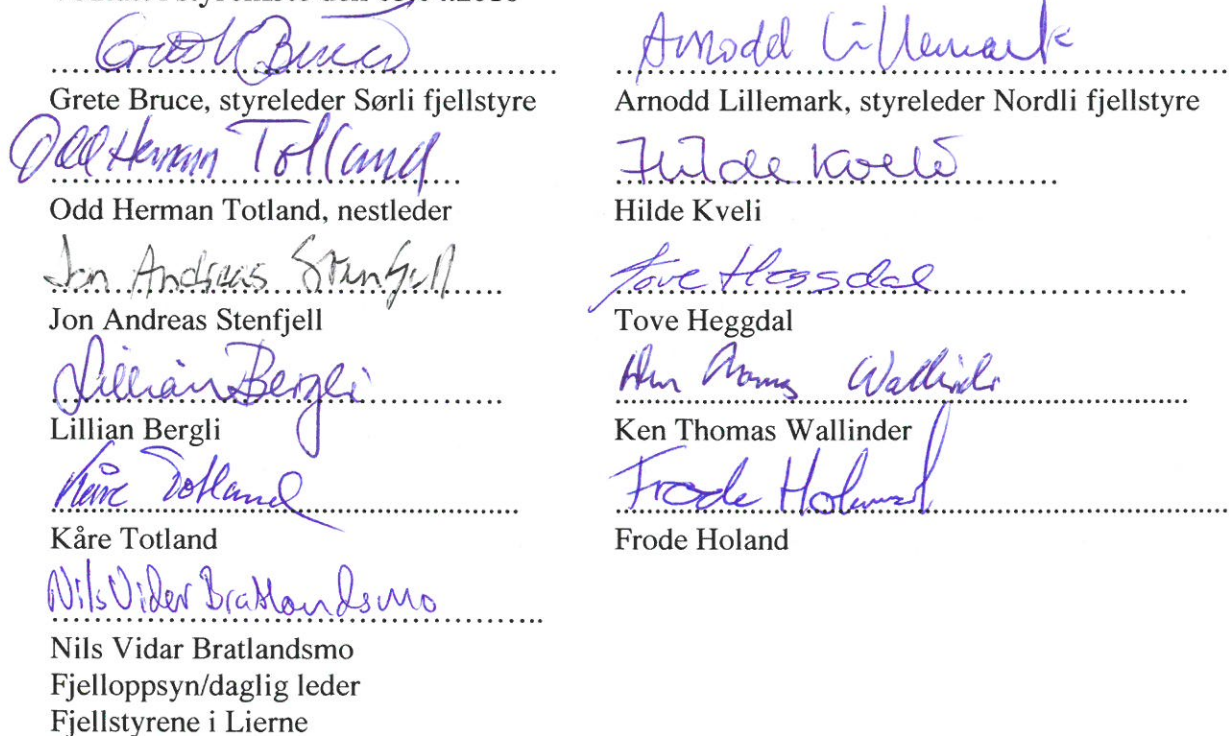 Grete Bruce
Grete Bruce, styreleder Sørli fjellstyre
Odd Herman Totland
Odd Herman Totland, nestleder
Jon Andreas Stenfjell
Jon Andreas Stenfjell
Lillian Bergli
Lillian Bergli
Kåre Totland
Kåre Totland
Nils Vidar Bratlandsmo
Nils Vidar Bratlandsmo
Fjelloppsyn/daglig leder
Fjellstyrene i Lierne
Arnodd Lillemark
Arnodd Lillemark, styreleder Nordli fjellstyre
Hilde Kveli
Hilde Kveli
Tove Heggdal
Tove Heggdal
Ken Thomas Wallinder
Ken Thomas Wallinder
Frode Holand
Frode Holand